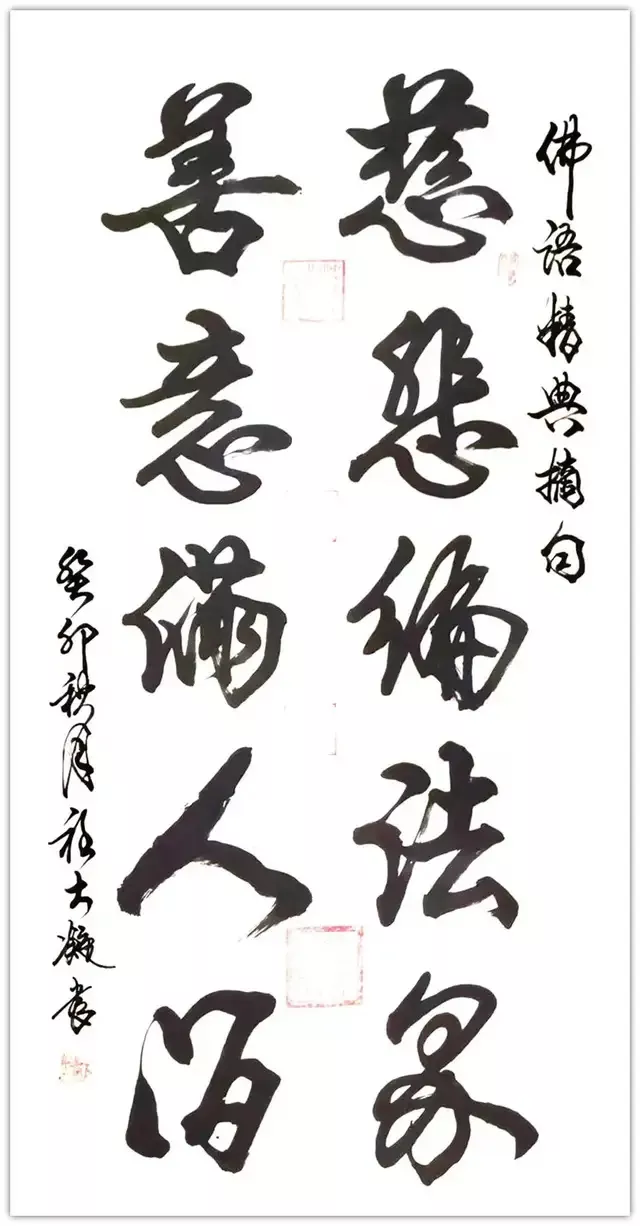 佛语精典摘句
慈悲徧法界
善意满人间
癸卯秋月